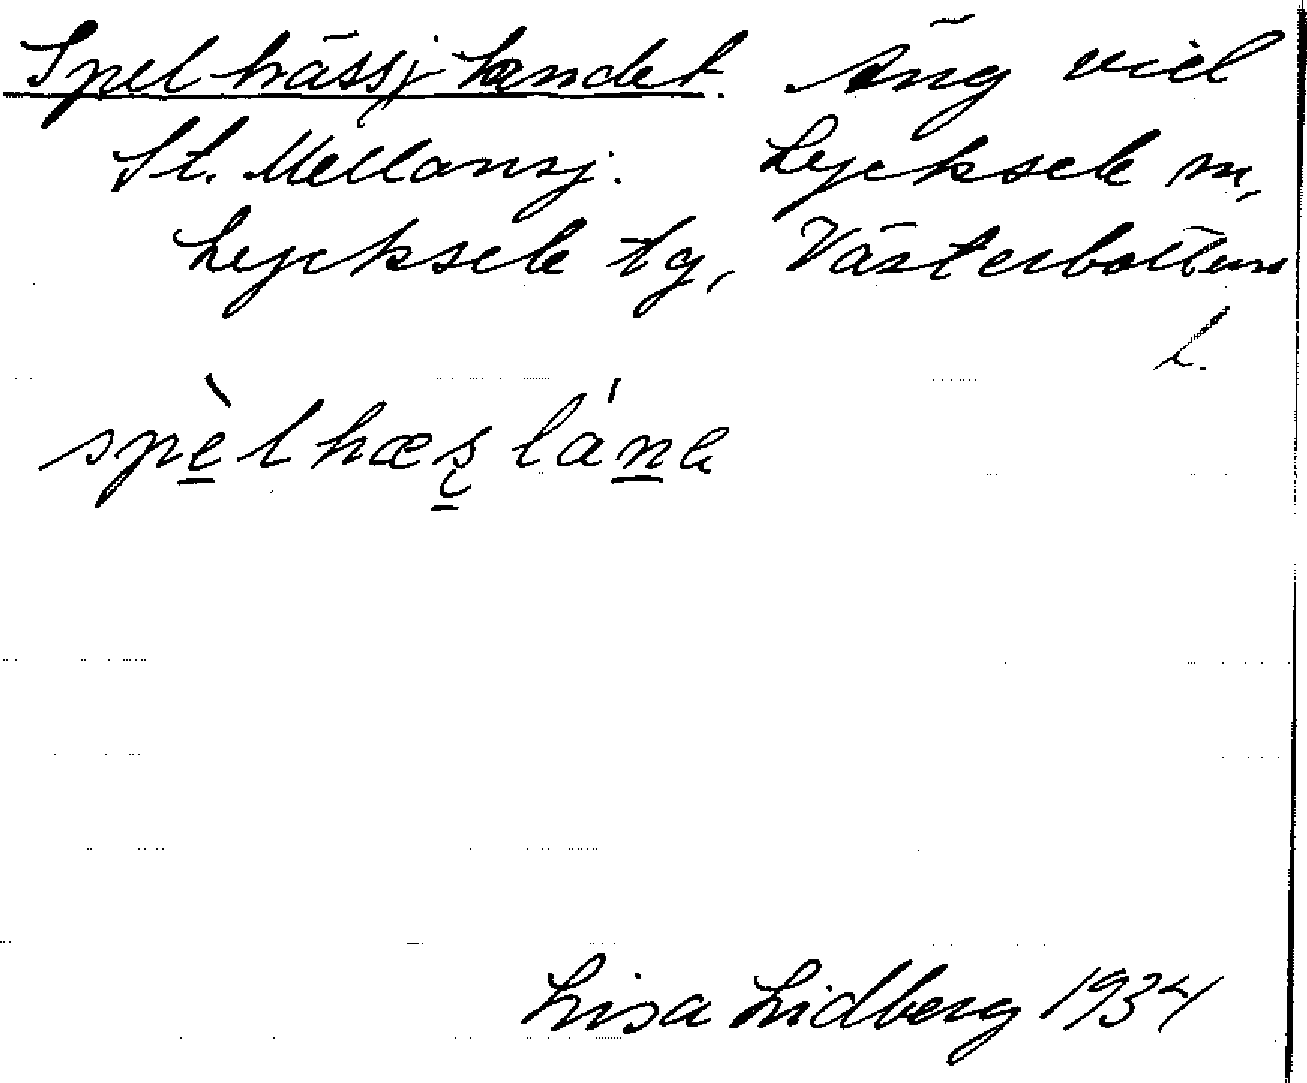 Spelhässjlandet. Äng vid
St. Mellansj. Lycksele sn,
Lycksele tg, Västerbottens
L.
spèlhæs̨lána
Lisa Lidberg 1934